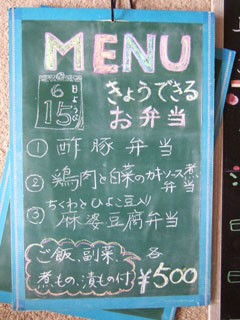 MENU
6
15
日
ようび
きょうできる
お弁当
① 酢豚弁当
② 鶏肉と白菜のカキソース煮
弁当
③ ちくわとひよこ豆入り
麻婆豆腐弁当
ご飯、副菜、
煮もの、漬もの付
各
¥500